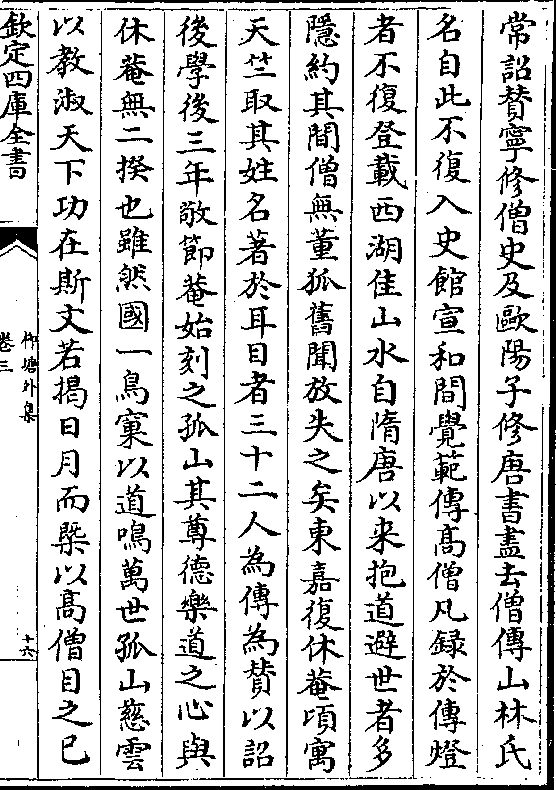 常詔賛寧修僧史及歐陽子修唐書盡去僧傳山林氏
名自此不復入史館宣和間覺範傳髙僧凡録於傳燈
者不復登載西湖佳山水自隋唐以来抱道避世者多
隱約其間僧無董狐舊聞放失之矣東嘉復休菴頃寓
天竺取其姓名著於耳目者三十二人為傳為賛以詔
後學後三年敬節菴始刻之孤山其尊德樂道之心與
休菴無二揆也雖然國一鳥窠以道鳴萬世孤山慈雲
以教淑天下功在斯文若揭日月而槩以髙僧目之已
欽定四庫全書
柳塘外集
卷三
十六